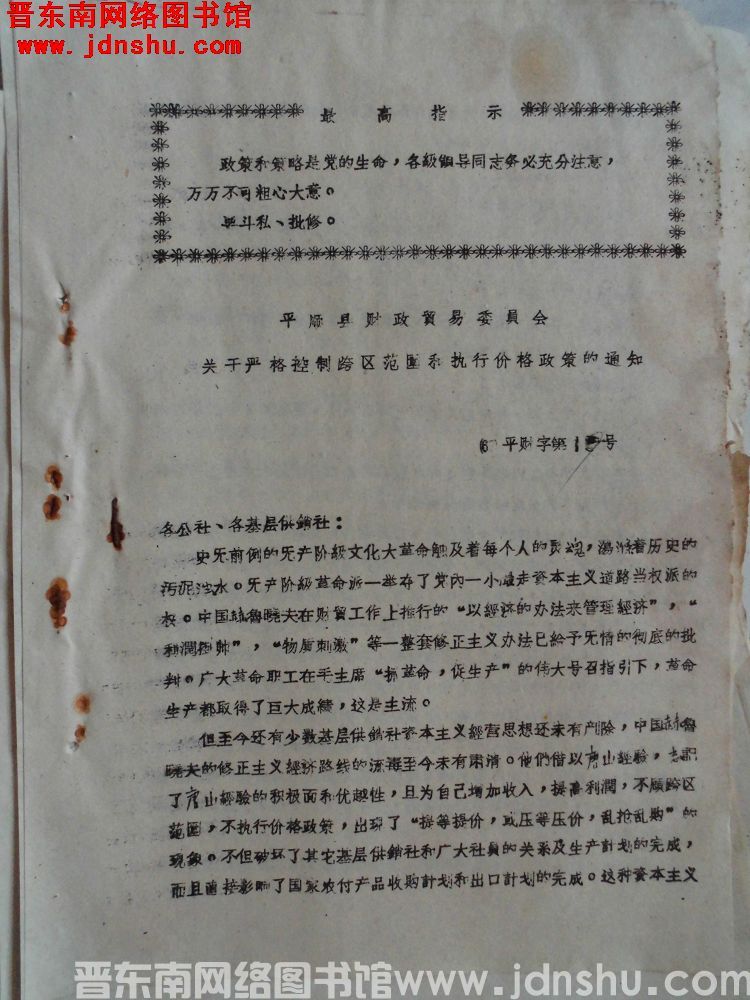 晋东南网络图书馆
www.jdnshu.com
最高指示
政策和策略是党的生命，各級領导同志务必充分注意，
万万不可粗心大意。
要斗私、批修。
平顺县财政貿易委員会
关于严格控制跨区范围和执行价格政策的通知
平财字第 号
各公社、各基层供銷社：
史无前例的无产阶級文化大革命触及着每个人的灵魂，滌着历史的
污泥浊水。无产阶級革命派一举夺了党內一小撮走資本主义道路当权派的
权。中国赫魯晓夫在财贸工作上推行的“以經济的办法来管理經济”，“
利潤挂帅”，“物质刺激”等一整套修正主义办法已給予无情的彻底的批
判。广大革命职工在毛主席“抓革命，促生产”的伟大号召指引下，革命
生产都取得了巨大成績，这是主流。
但至今还有少数基层供銷社資本主义經营思想还未有产除，中国赫魯
晓夫的修正主义經济路线的流毒至今未有肃清。他們借以唐山經驗，
了唐山經驗的积极面和优越性，且为自己增加收入，提高利潤，不顾跨区
范围，不执行价格政策，出現了“提等提价，或压等压价，乱抢乱购”的
現象。不但破坏了其它基层供銷社和广大社員的关系及生产計划的完成，
而且直接影响了国家农付产品收购計划和出口計划的完成。这种资本主义
晋东南网络图书馆www.jdnshu.com